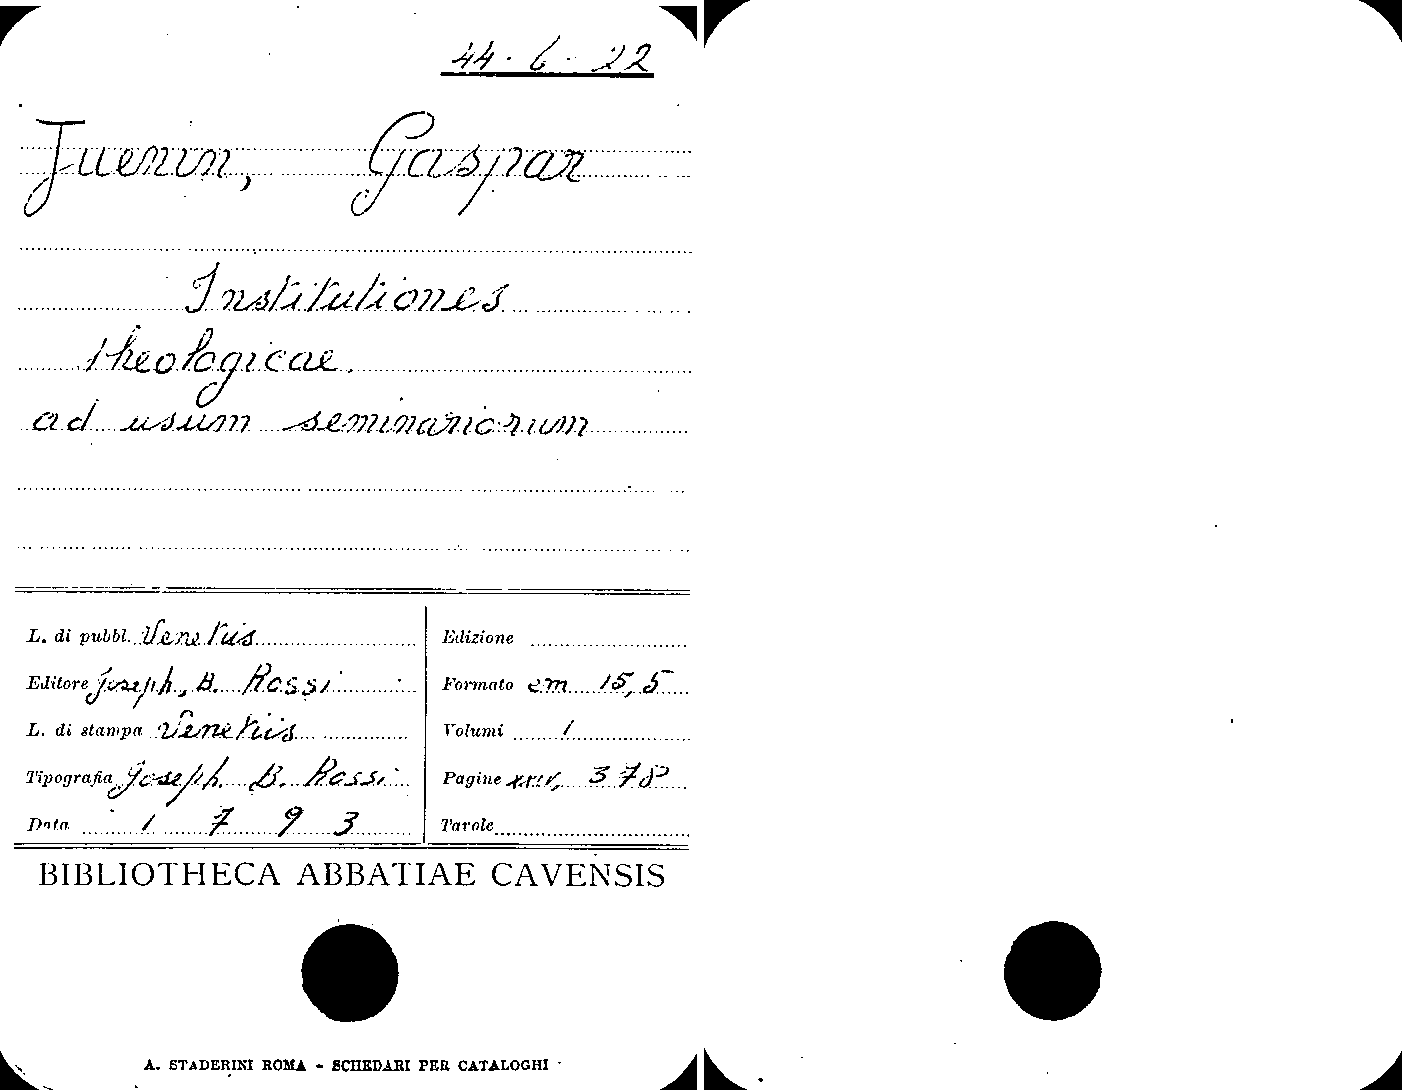 44 · 6 · 22
Juenin, Gaspar
Institutiones
theologicae.
ad usum seminariorum
L. di pubbl. Venetiis
Edizione
Editore Joseph, B. Rossi
Formato cm 15,5
L. di stampa Venetiis
Volumi 1
Tipografia Joseph B. Rossi
Pagine 378
Data 1793
Tavole
BIBLIOTHECA ABBATIAE CAVENSIS
A. STADERINI ROMA - SCHEDARI PER CATALOGHI